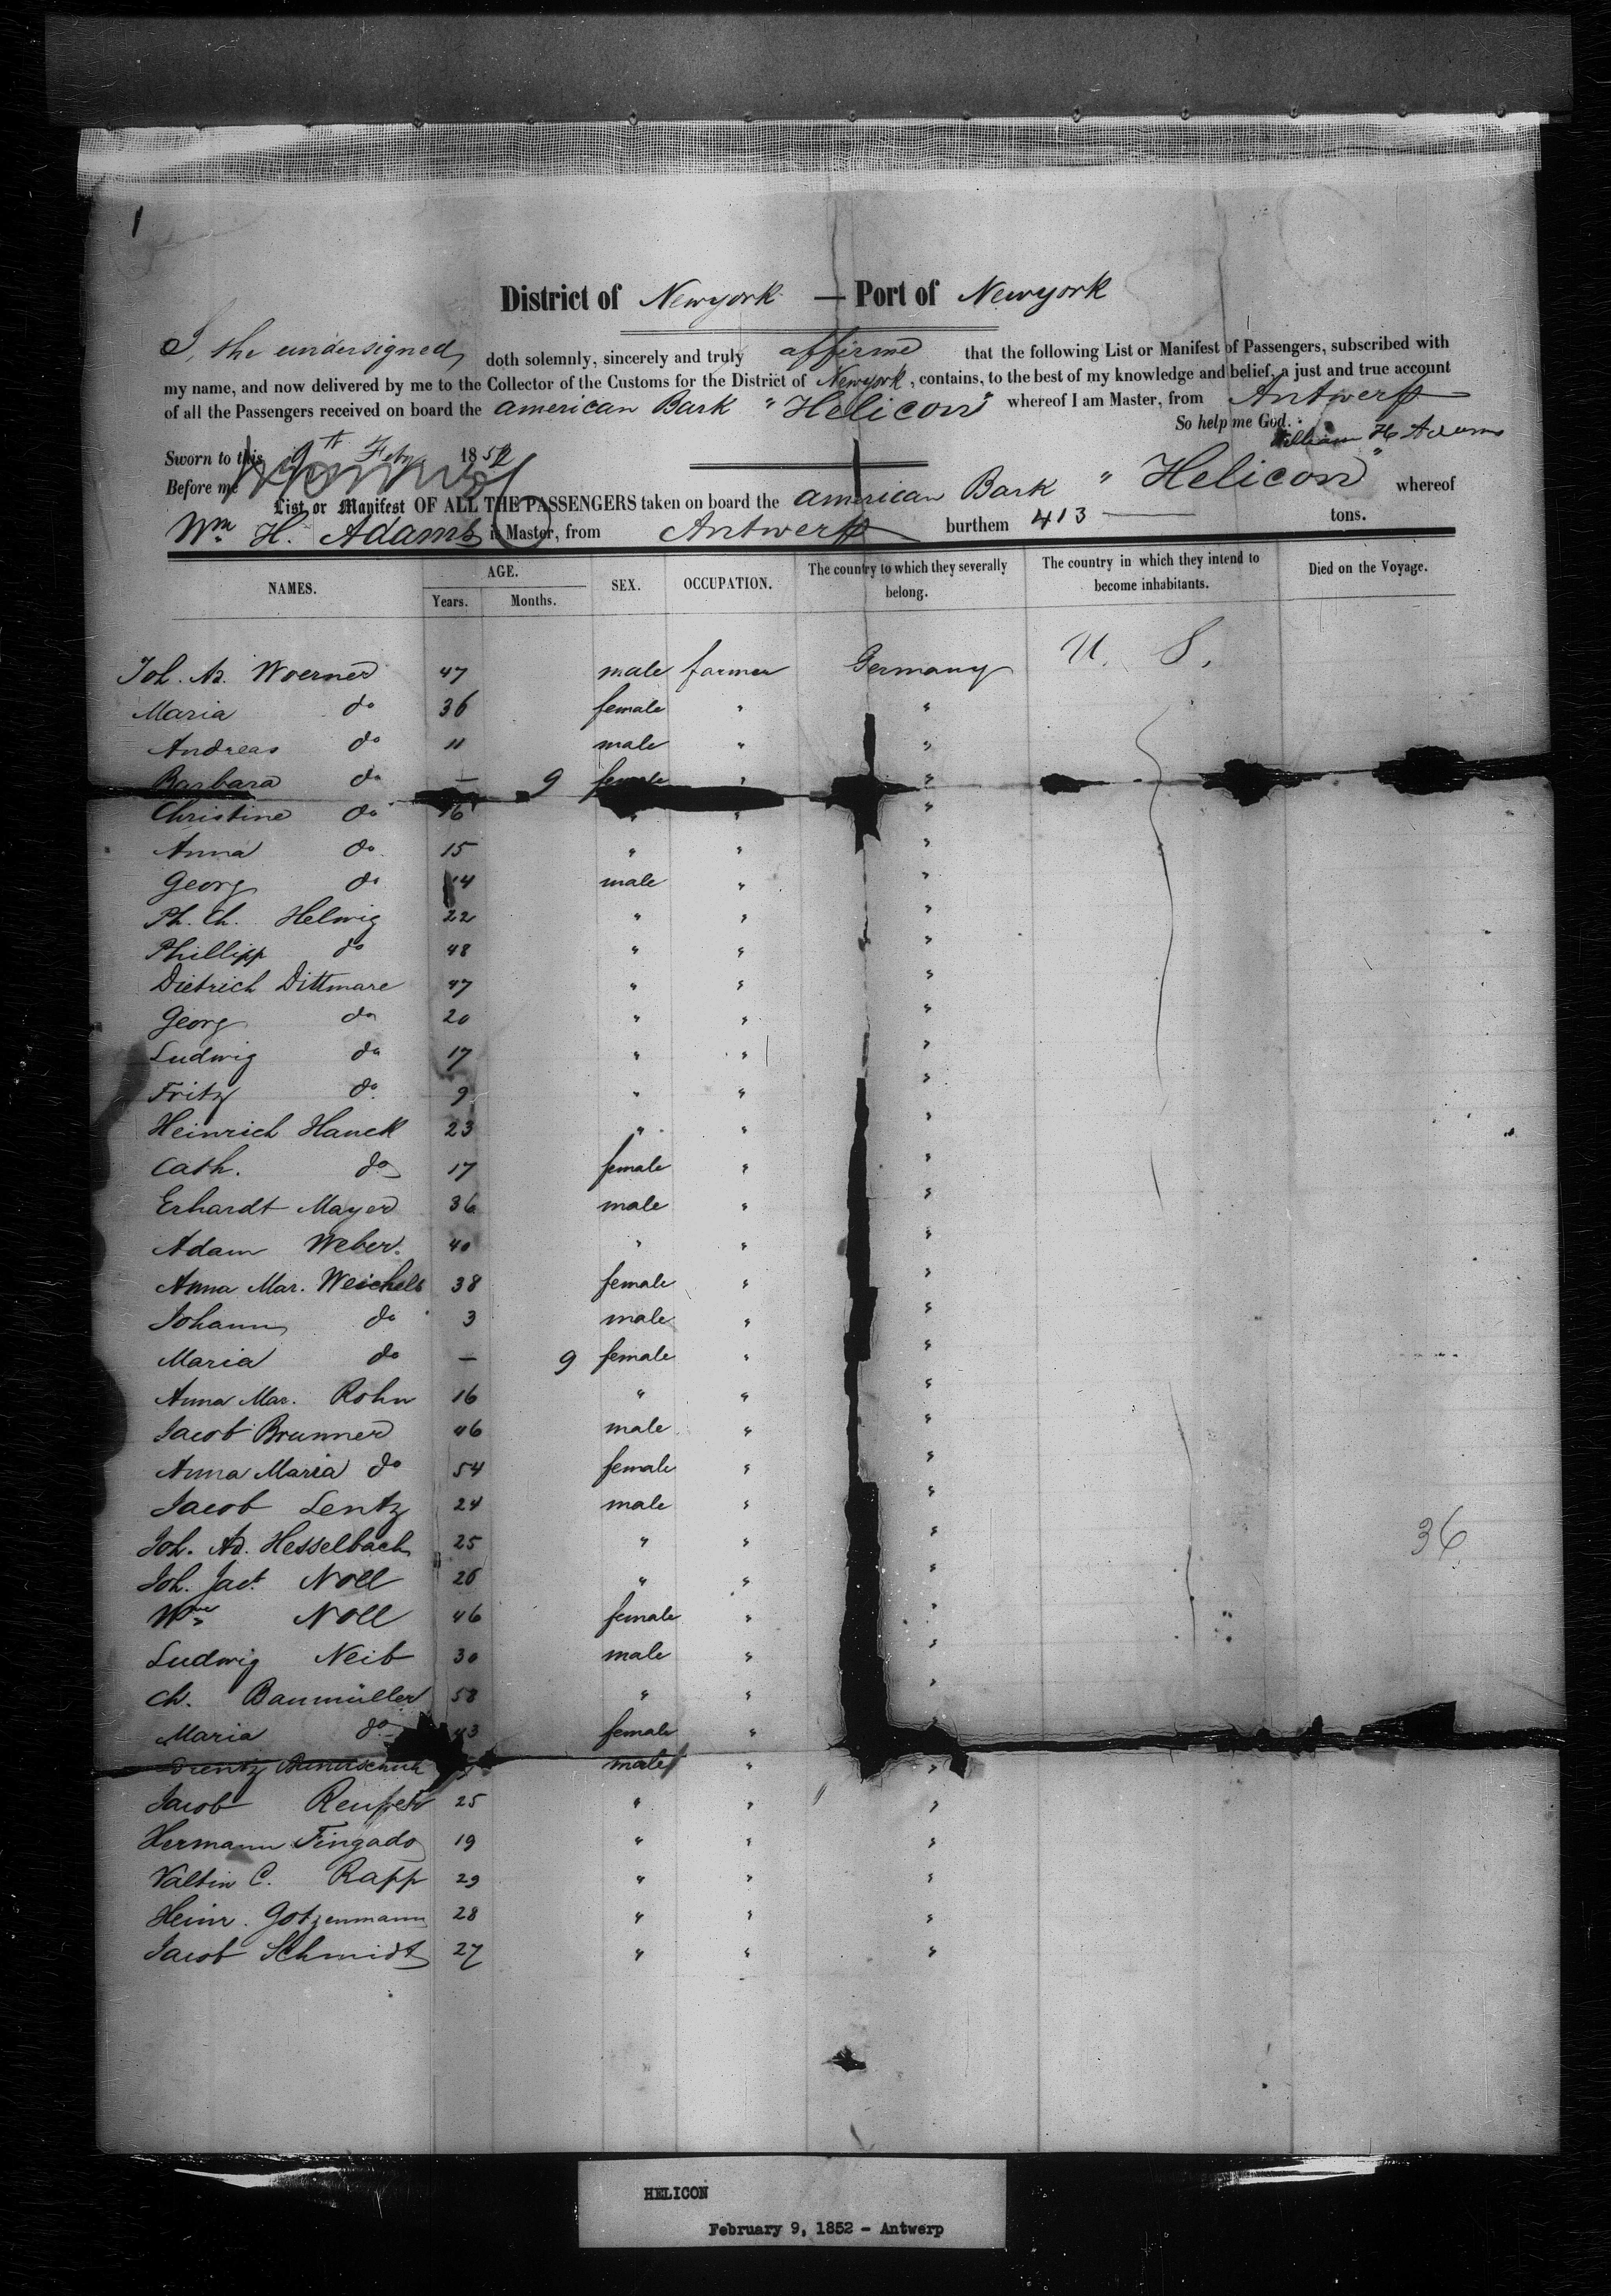 1
District of Newyork — Port of Newyork
I, the undersigned, doth solemnly, sincerely and truly affirme that the following List or Manifest of Passengers, subscribed with
my name, and now delivered by me to the Collector of the Customs for the District of Newyork, contains, to the best of my knowledge and belief, a just and true account
of all the Passengers received on board the american Bark "Helicon" whereof I am Master, from Antwerp
So help me God.
William H Adams
Sworn to this 9th Feby 1852
Before me
List or Manifest OF ALL THE PASSENGERS taken on board the american Bark "Helicon" whereof
Wm H. Adams is Master, from Antwerp burthem 413 — tons.
NAMES. AGE. Years. Months. SEX. OCCUPATION. The country to which they severally belong. The country in which they intend to become inhabitants. Died on the Voyage.
Joh. Woerner 47 male farmer Germany U. S.
Maria do 36 female " "
Andreas do 11 male " "
Barbara do — 9 female " "
Christine do 16 " " "
Anna do 15 " " "
Georg do 14 male " "
Ph. Ch. Helwig 22 " " "
Phillipp do 48 " " "
Dietrich Dittmare 47 " " "
Georg do 20 " " "
Ludwig do 17 " " "
Fritz do 9 " " "
Heinrich Hauck 23 " " "
Cath. do 17 female " "
Erhardt Mayer 36 male " "
Adam Weber. 40 " " "
Anna Mar. Weichels 38 female " "
Johann do 3 male " "
Maria do — 9 female " "
Anna Mar. Rohn 16 " " "
Jacob Brunner 46 male " "
Anna Maria do 54 female " "
Jacob Lentz 24 male " "
Joh. Ad. Hesselbach 25 " " " 36
Joh. Jac. Noll 26 " " "
Noll 46 female " "
Ludwig Neib 30 male " "
Ch. Baumüller 58 " " "
Maria do 43 female " "
male " "
Jacob 25 " " "
Hermann Fingado 19 " " "
Valtin C. Rapp 29 " " "
Heinr. Gotzenmann 28 " " "
Jacob Schmidt 27 " " "
HELICON
February 9, 1852 - Antwerp